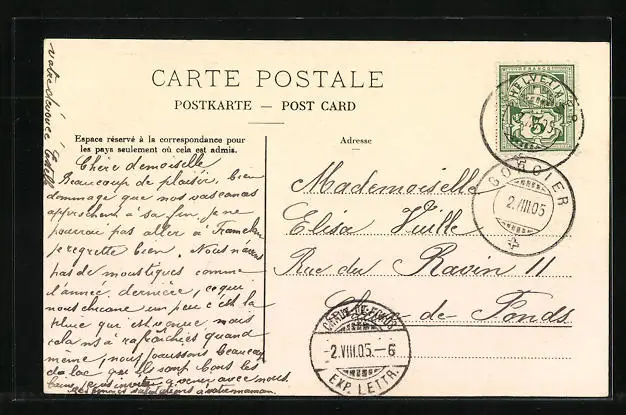 CARTE POSTALE
POSTKARTE — POST CARD
Espace réservé à la correspondance pour
les pays seulement où cela est admis.
Adresse
HELVETIA
FRANCO
5
CORGIER
2.VIII.05
Chère demoiselle
Beaucoup de plaisir, bien
dommage que nos vacances
approchent à sa fin, je ne
pourrai pas aller à Tramelan
je regrette bien. Nous n'avons
pas de moustiques comme
l'année dernière, ce qui
nous chicane un peu c'est la
pluie qui est venue, mais
cela n'a rafraîchies quand
même, nous jouissons beaucoup
du lac
à venir avec nous.
salutations à votre maman.
votre dévouée
Mademoiselle
Elisa Vuille
Rue du Ravin 11
Chaux-de-Fonds
CHAUX-DE-FONDS
-2.VIII.05.-6
EXP. LETTR.